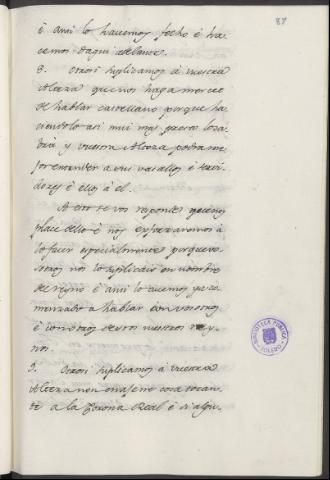 87
é ansi lo havemos fecho é ha-
cemos daqui adelante.
8. Otrosi suplicamos á vuestra
Alteza que nos haga merced
de hablar castellano porque ha-
ciendolo asi mui mas presto lo sa-
brá y vuestra Alteza podra me-
jor entender a sus vasallos é servi-
dores é ellos á él.
A esto se vos responde que nos
place dello é nos esforzaremos á
lo facer especialmente porque vo-
sotros nos lo suplicais en nombre
del reyno é ansi lo avemos ya co-
menzado a hablar con vosotros
é con otros destos nuestros rey-
nos.
9. Otrosi suplicamos á vuestra
Alteza non enajene cosa tocan-
te a la Corona Real é si algu-
BIBLIOTECA PUBLICA
TOLEDO